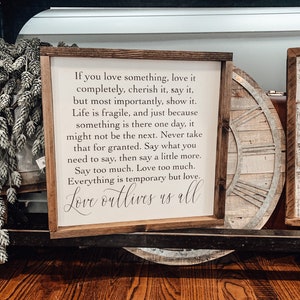 If you love something, love it
completely, cherish it, say it,
but most importantly, show it.
Life is fragile, and just because
something is there one day, it
might not be the next. Never take
that for granted. Say what you
need to say, then say a little more.
Say too much. Love too much.
Everything is temporary but love.
Love outlives us all